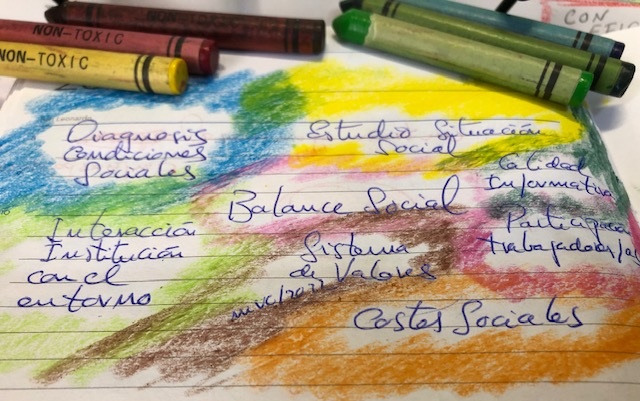 NON-TOXIC
NON-TOXIC
CON
Leonardo
Diagnosis
Condiciones
Sociales
Estudio Situación
Social
Calidad
Informativa
Balance Social
Participación
trabajadores/as
Interacción
Institución
con el
entorno
Sistema
de Valores
mvc/2022
Costes Sociales